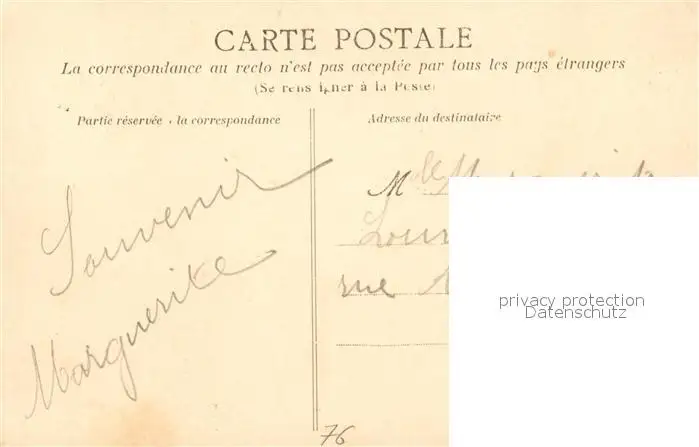 CARTE POSTALE
La correspondance au recto n'est pas acceptée par tous les pays étrangers
(Se renseigner à la Poste)
Partie réservée à la correspondance
Adresse du destinataire
Souvenir
Marguerite
Mlle
rue
privacy protection
Datenschutz
76